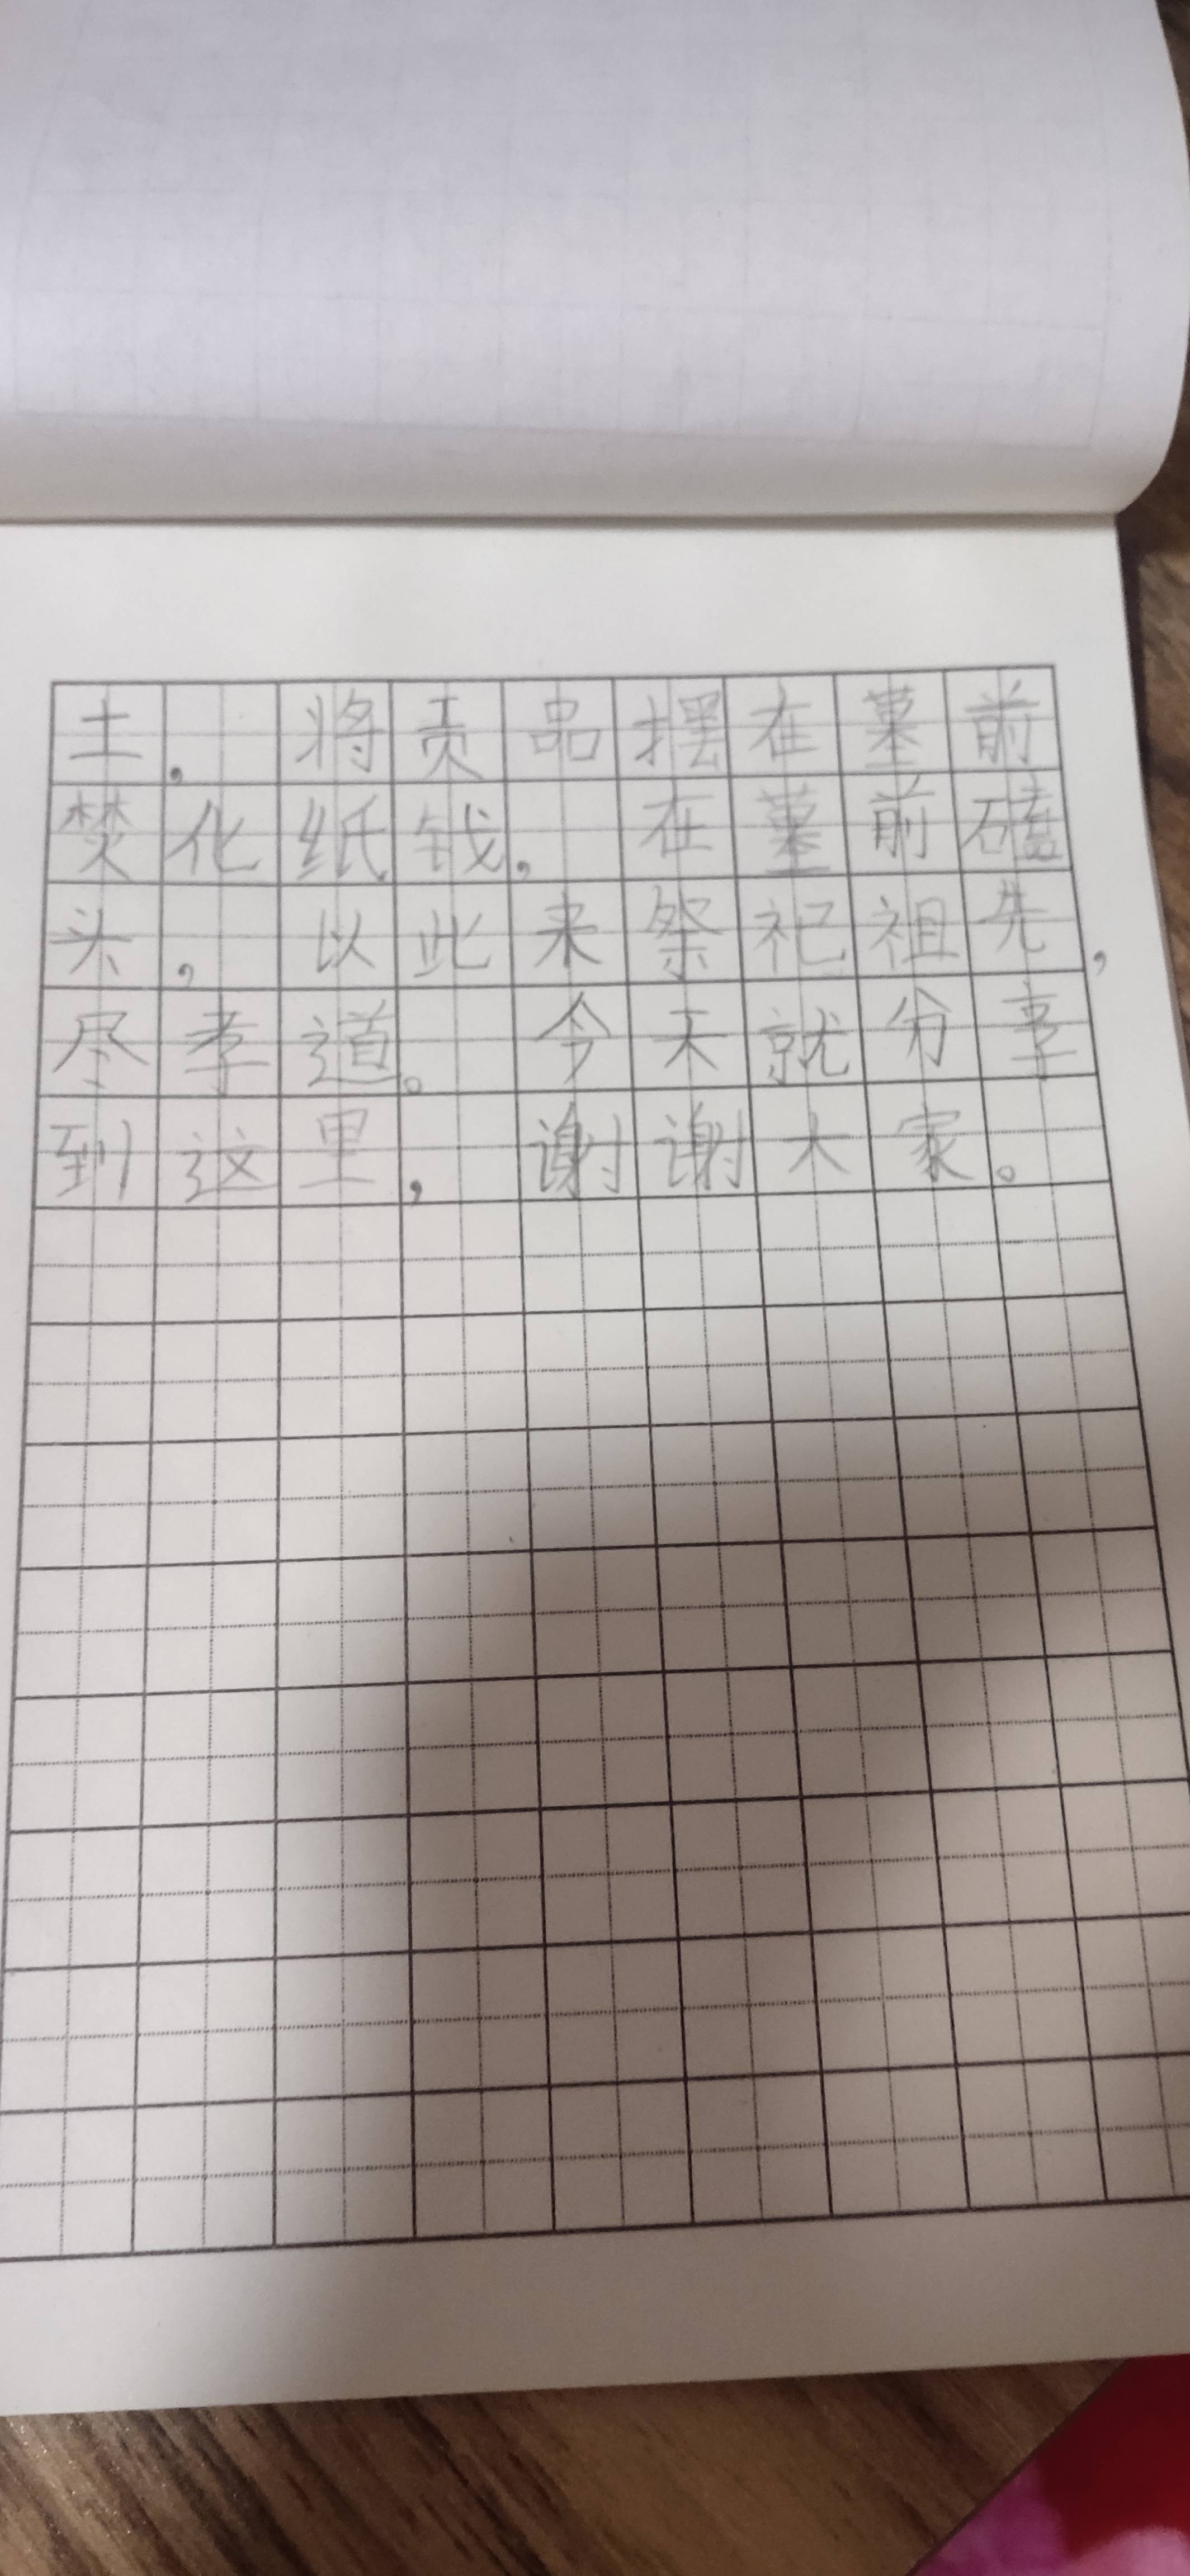 土，将贡品摆在墓前
焚化纸钱，在墓前磕
头，以此来祭祀祖先，
尽孝道。今天就分享
到这里，谢谢大家。